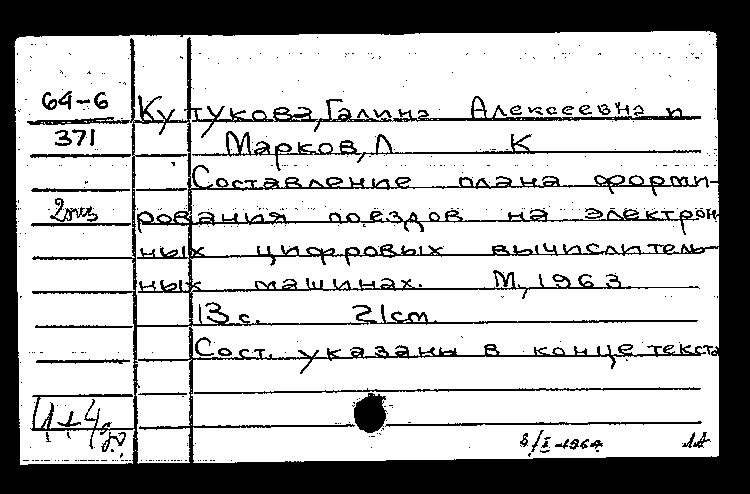 64-6
Кутукова, Галина Алексеевна и
371
Марков, Л К
Составление плана форми-
2экз
рования поездов на электрон-
ных цифровых вычислитель-
ных машинах. М, 1963.
13 с. 21 см.
Сост. указаны в конце текста
8/I-1964